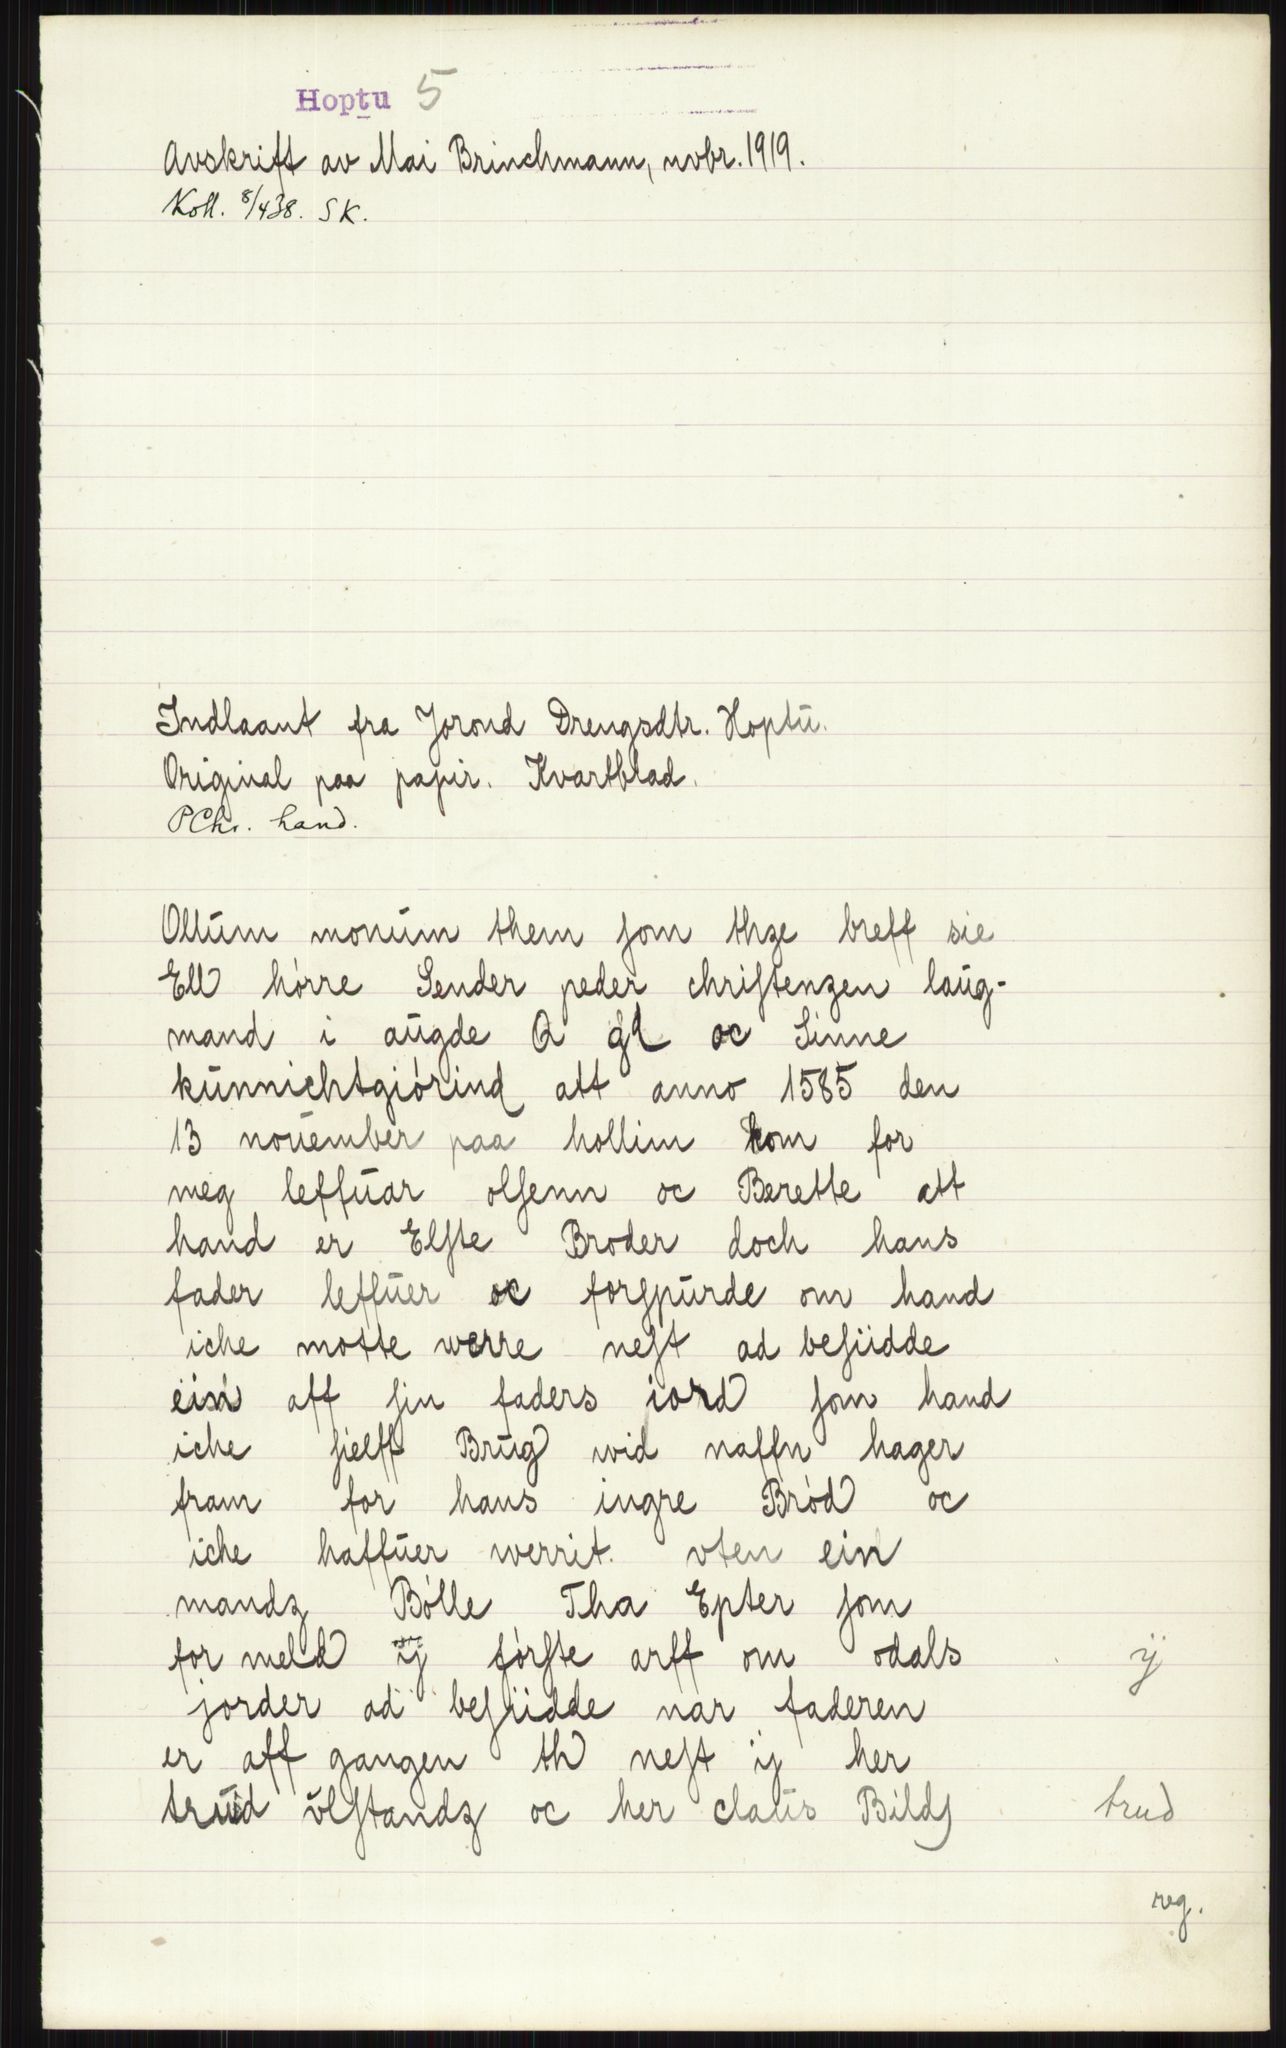 Hoptu 5
Avskrift av Mai Brinchmann, nvbr. 1919.
Koll. 8/438. SK.
Indlaant fra Jorond Drengsdtr. Hoptŭ.
Original paa papir. Kvartblad.
PChr. hand.
Ollŭm monŭm them som thze breff sie
Ell hórre Sender peder christenzen laŭg-
mand i aŭgde Q gl oc Sinne
kŭnnichtgiórind att anno 1585 den
13 nouember paa hollim kom for
meg leffŭar olsenn oc Berette att
hand er Elste Broder doch hans
fader leffŭer oc forspŭrde om hand
iche motte werre nest ad besiidde
ein aff sin faders iord som hand
iche sielff Brŭg wid naffn hager
fram for hans ingre Bród oc
iche haffŭer werrit. vten ein
mandz Bólle Tha Epter som
for meld ij fórste arff om odals ij
jorder ad besiidde nar faderen
er aff gangen th nest ij her
trud ŭlstandz oc her claŭs Bilds trud
reg.